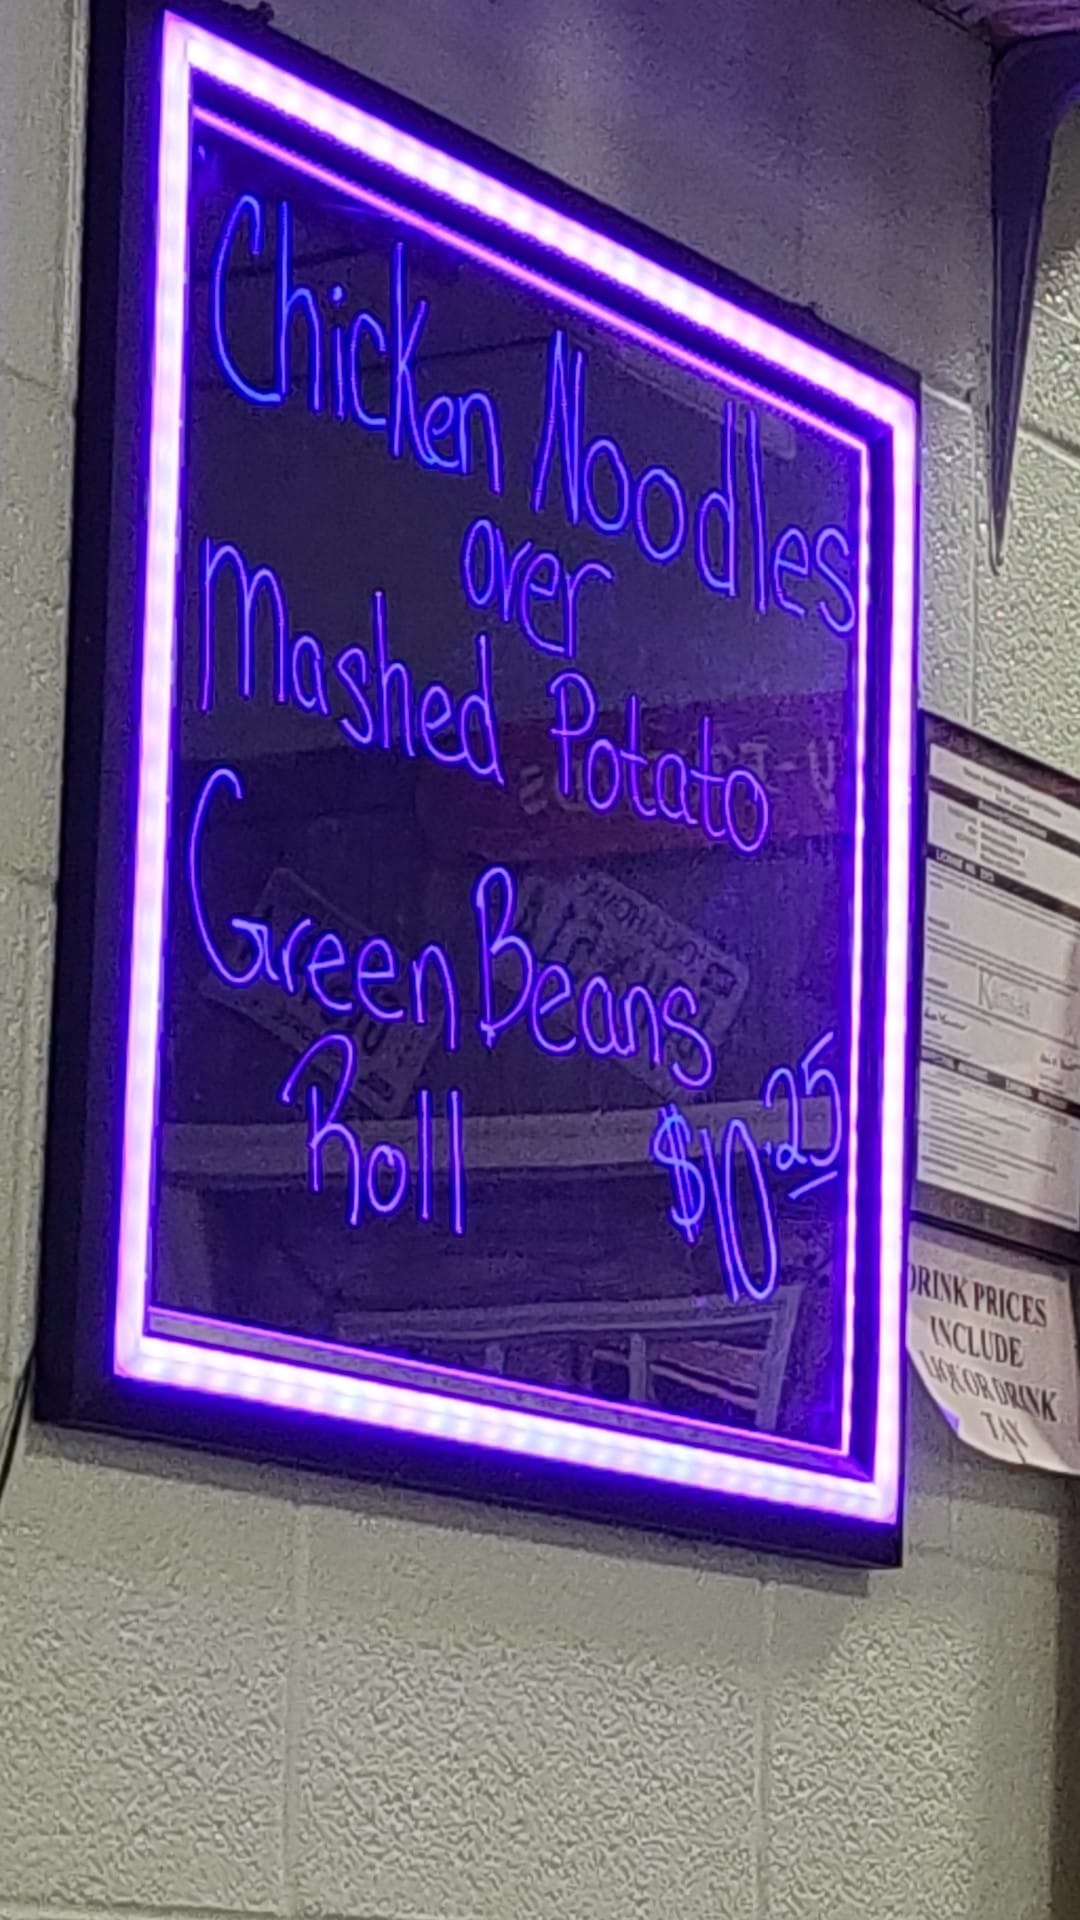 Chicken Noodles
over
Mashed Potato
Green Beans
Roll $10.25
DRINK PRICES
INCLUDE
LIQUOR DRINK
TAX